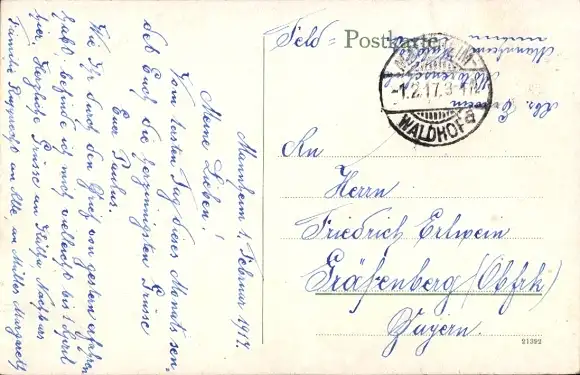 Mannheim 1. Februar 1917.
Meine Lieben!
Vom letzten Tag dieses Monats sen-
det Euch die herzinnigsten Grüsse
Euer Paulus.
Wie Ihr durch den Brief von gestern erfahren
habt, befinde ich mich vielleicht bis 1. April
hier. Herzliche Grüsse an
Familie Rupprecht an Alle an Müller Margareth
Feld= Postkarte
Mannheim
MANNHEIM-
-1.2.17. 8-
WALDHOF a
An
Herrn
Friedrich Erlwein
Gräfenberg (Obfrk)
Bayern.
21392